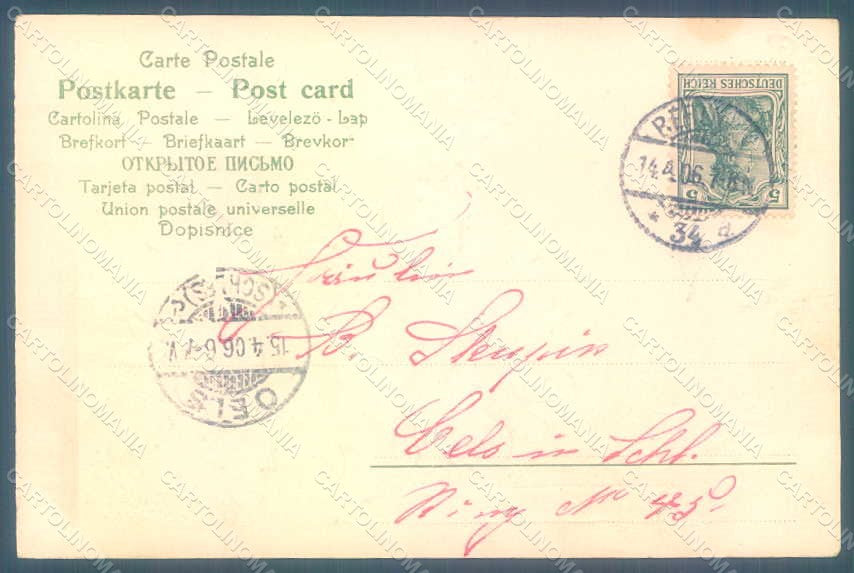 Carte Postale
Postkarte — Post card
Cartolina Postale — Levelezö-Lap
Brefkort — Briefkaart — Brevkort
ОТКРЫТОЕ ПИСЬМО
Tarjeta postal — Carto postal
Union postale universelle
Dopisnice
DEUTSCHES REICH
5 5
14.4.06.7
* 34 d.
(SCHLES)
15.4.06.6-7.V.
OELS
Fräulein
B. Skupin
Oels in Schl.
Ring No 45
CARTOLINOMANIA